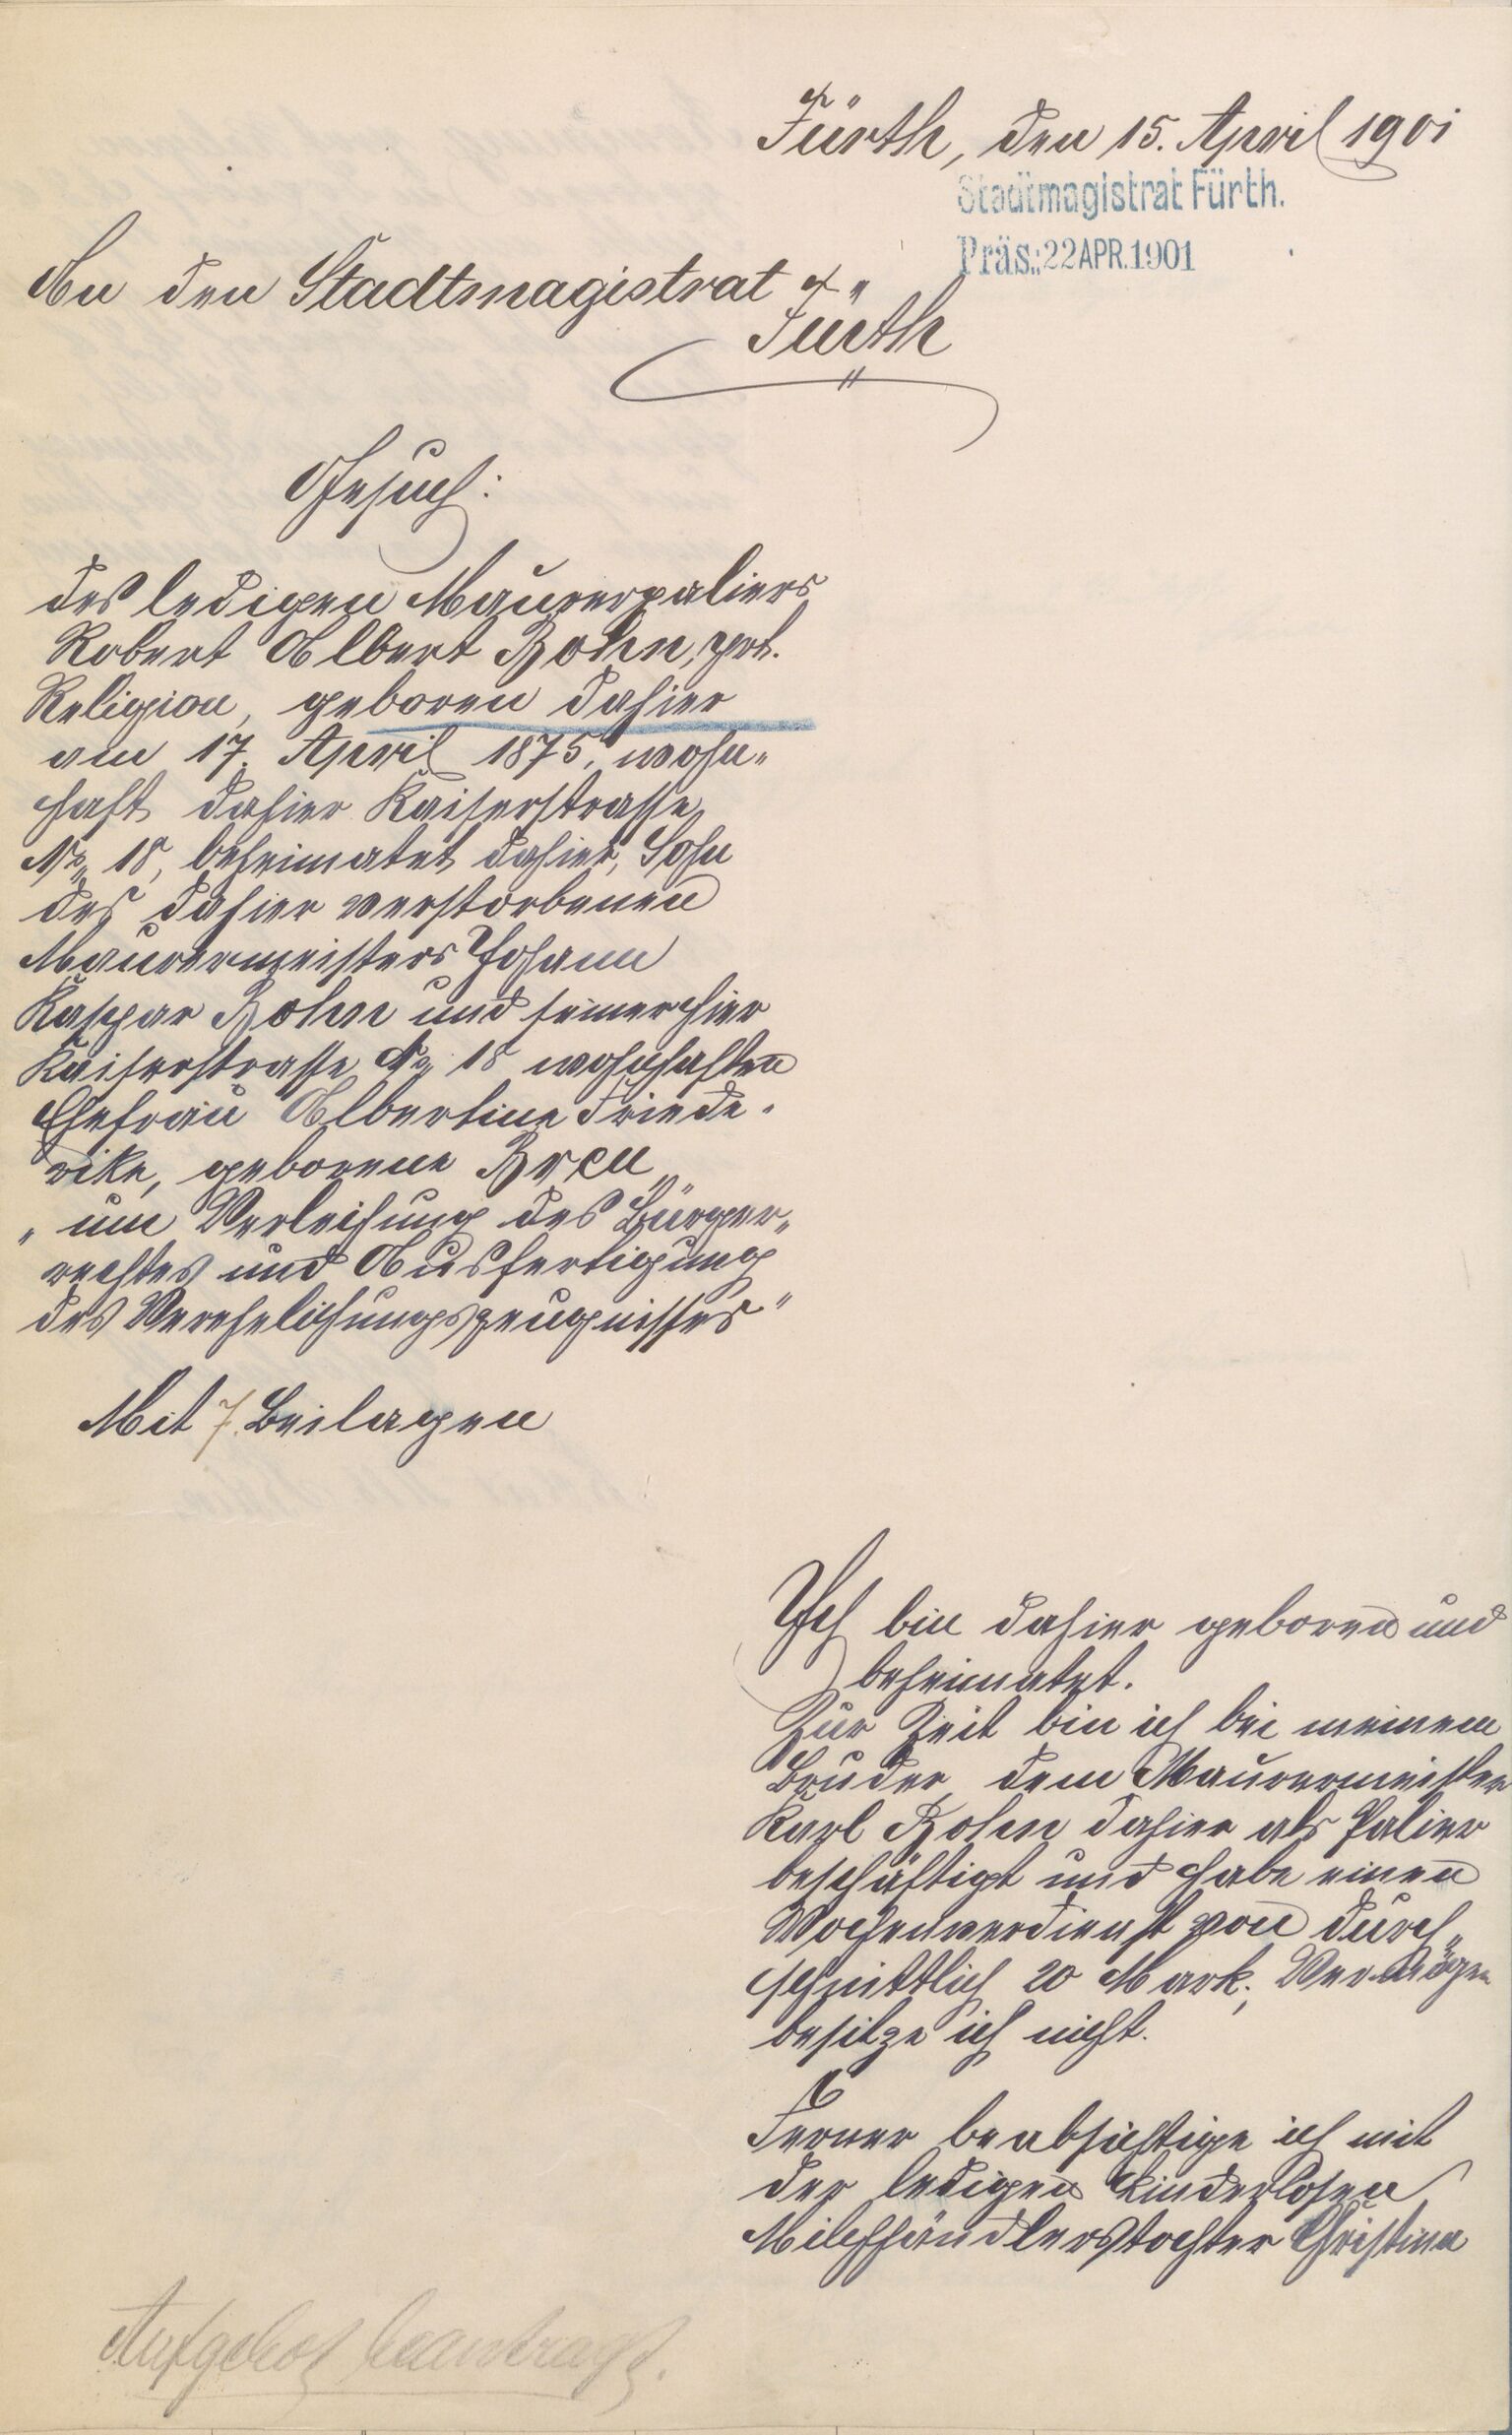 Fürth, den 15. April 1901
Stadtmagistrat Fürth.
Präs.: 22 APR. 1901
An den Stadtmagistrat
Fürth
Gesuch:
des ledigen Maurerpaliers
Robert Albert Bohn, prt.
Religion, geboren dahier
am 17. April 1875, wohn„
haft dahier Kaiserstrasse
No 18, beheimatet dahier, Sohn
des dahier verstorbenen
Maurermeisters Johann
Kaspar Bohn und seiner hier
Kaiserstrasse No 18 wohnhaften
Ehefrau Albertine Friede„
rike, geborene
„um Verleihung des Bürger„
rechtes und Ausfertigung
des Verehelichungszeugnisses"
Mit 7 Beilagen
Ich bin dahier geboren und
beheimatet.
Zur Zeit bin ich bei meinem
Bruder, dem Maurermeister
Karl Bohn dahier als Palier
beschäftigt und habe einen
Wochenverdienst von durch„
schnittlich 20 Mark; Vermögen
besitze ich nicht.
Ferner beabsichtige ich mit
der ledigen kinderlosen
Milchhändlerstochter Christina
Aufgebot beantragt.